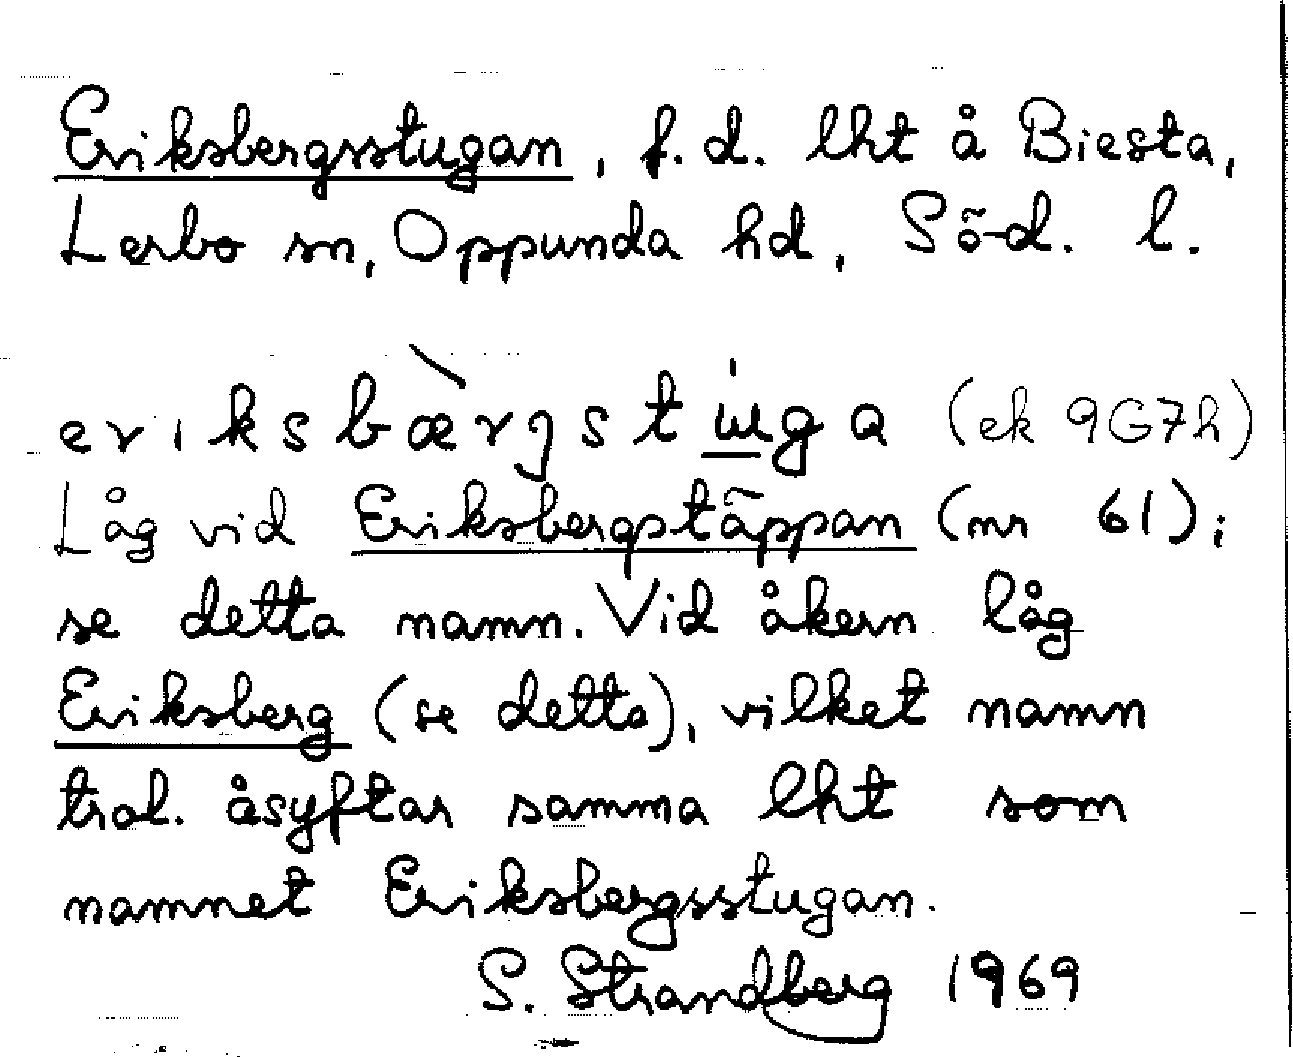 Eriksbergsstugan, f.d. lht å Biesta,
Lerbo sn, Oppunda hd, Söd. l.
eriksbæ̀rgstu̇ga (ek 9G7h)
Låg vid Eriksbergstäppan (nr 61);
se detta namn. Vid åkern låg
Eriksberg (se detta), vilket namn
trol. åsyftar samma lht som
namnet Eriksbergsstugan.
S. Strandberg 1969